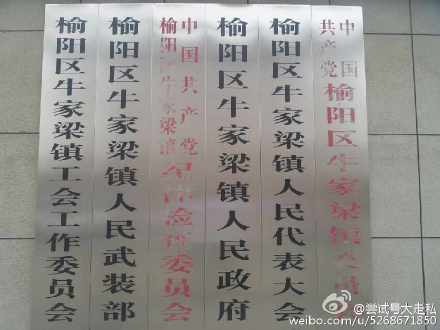 榆阳区牛家梁镇工会工作委员会
榆阳区牛家梁镇人民武装部
中国共产党
榆阳区牛家梁镇纪律检查委员会
榆阳区牛家梁镇人民政府
榆阳区牛家梁镇人民代表大会
中国
共产党
榆阳区牛家梁镇委员
@尝试号大走私
weibo.com/u/5268671850